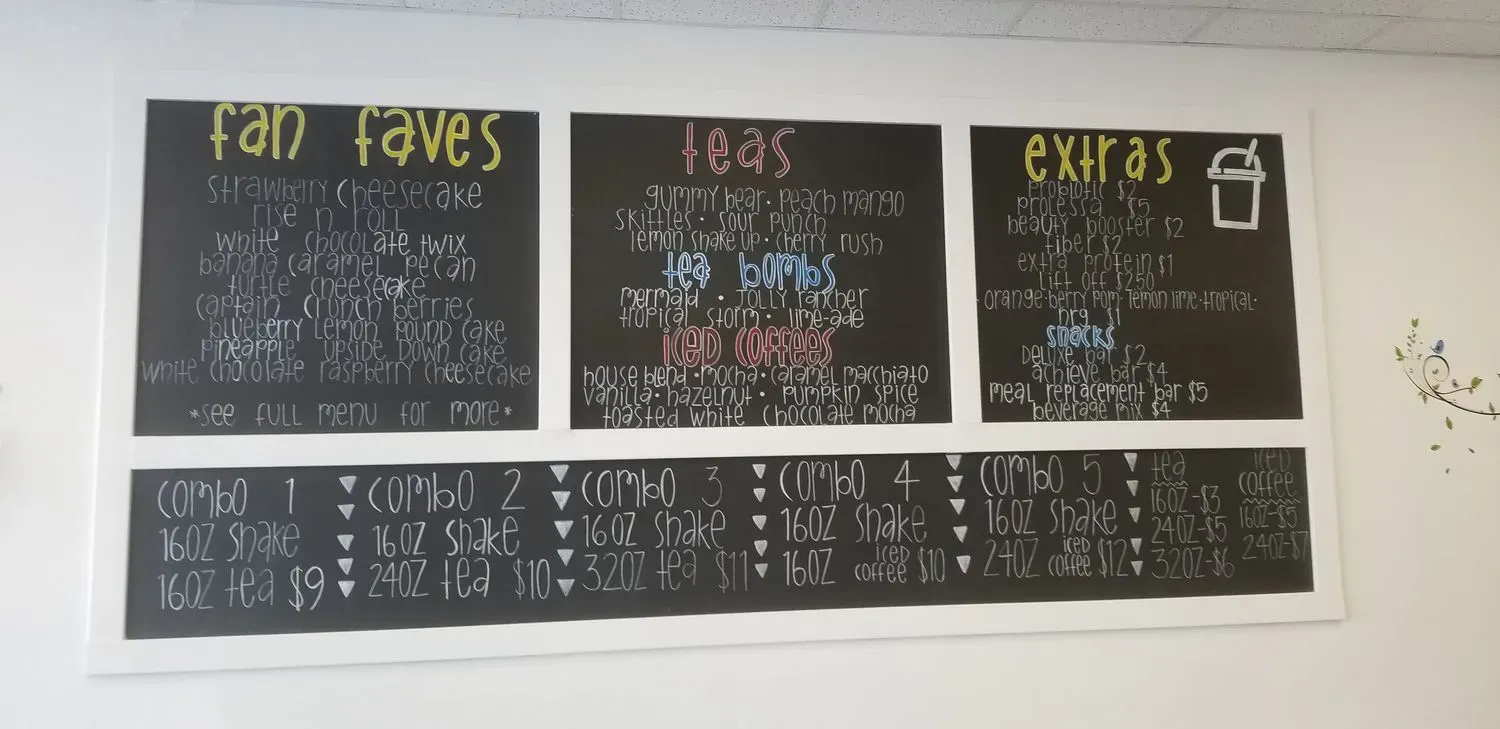 fan faves
strawberry cheesecake
rise n roll
white chocolate twix
banana caramel pecan
turtle cheesecake
captain crunch berries
blueberry lemon pound cake
pineapple upside down cake
white chocolate raspberry cheesecake
*see full menu for more*
teas
gummy bear • peach mango
skittles • sour punch
lemon shake up • cherry rush
tea bombs
mermaid • jolly rancher
tropical storm • lime-ade
iced coffees
house blend • mocha • caramel macchiato
vanilla • hazelnut • pumpkin spice
toasted white chocolate mocha
extras
probiotic $2
prolessa $5
beauty booster $2
fiber $2
extra protein $1
lift off $2.50
• orange • berry pom • lemon lime • tropical •
nrg $1
snacks
deluxe bar $2
achieve bar $4
meal replacement bar $5
beverage mix $4
combo 1
16oz shake
16oz tea $9
combo 2
16oz shake
24oz tea $10
combo 3
16oz shake
32oz tea $11
combo 4
16oz shake
16oz iced coffee $10
combo 5
16oz shake
24oz iced coffee $12
tea
16oz-$3
24oz-$5
32oz-$6
iced
coffee
16oz-$5
24oz-$7